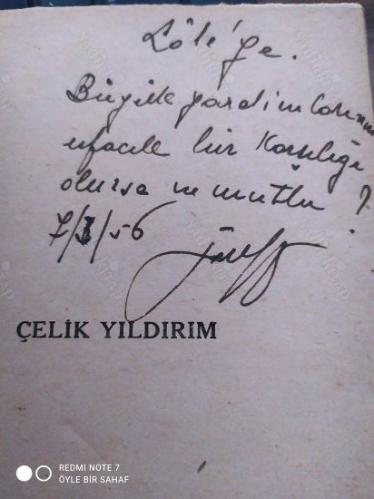 Löle'ye.
Büyük yardımlarının
ufacık bir karşılığı
olursa ne mutlu ?
7/3/56
ÇELİK YILDIRIM
REDMI NOTE 7
ÖYLE BİR SAHAF